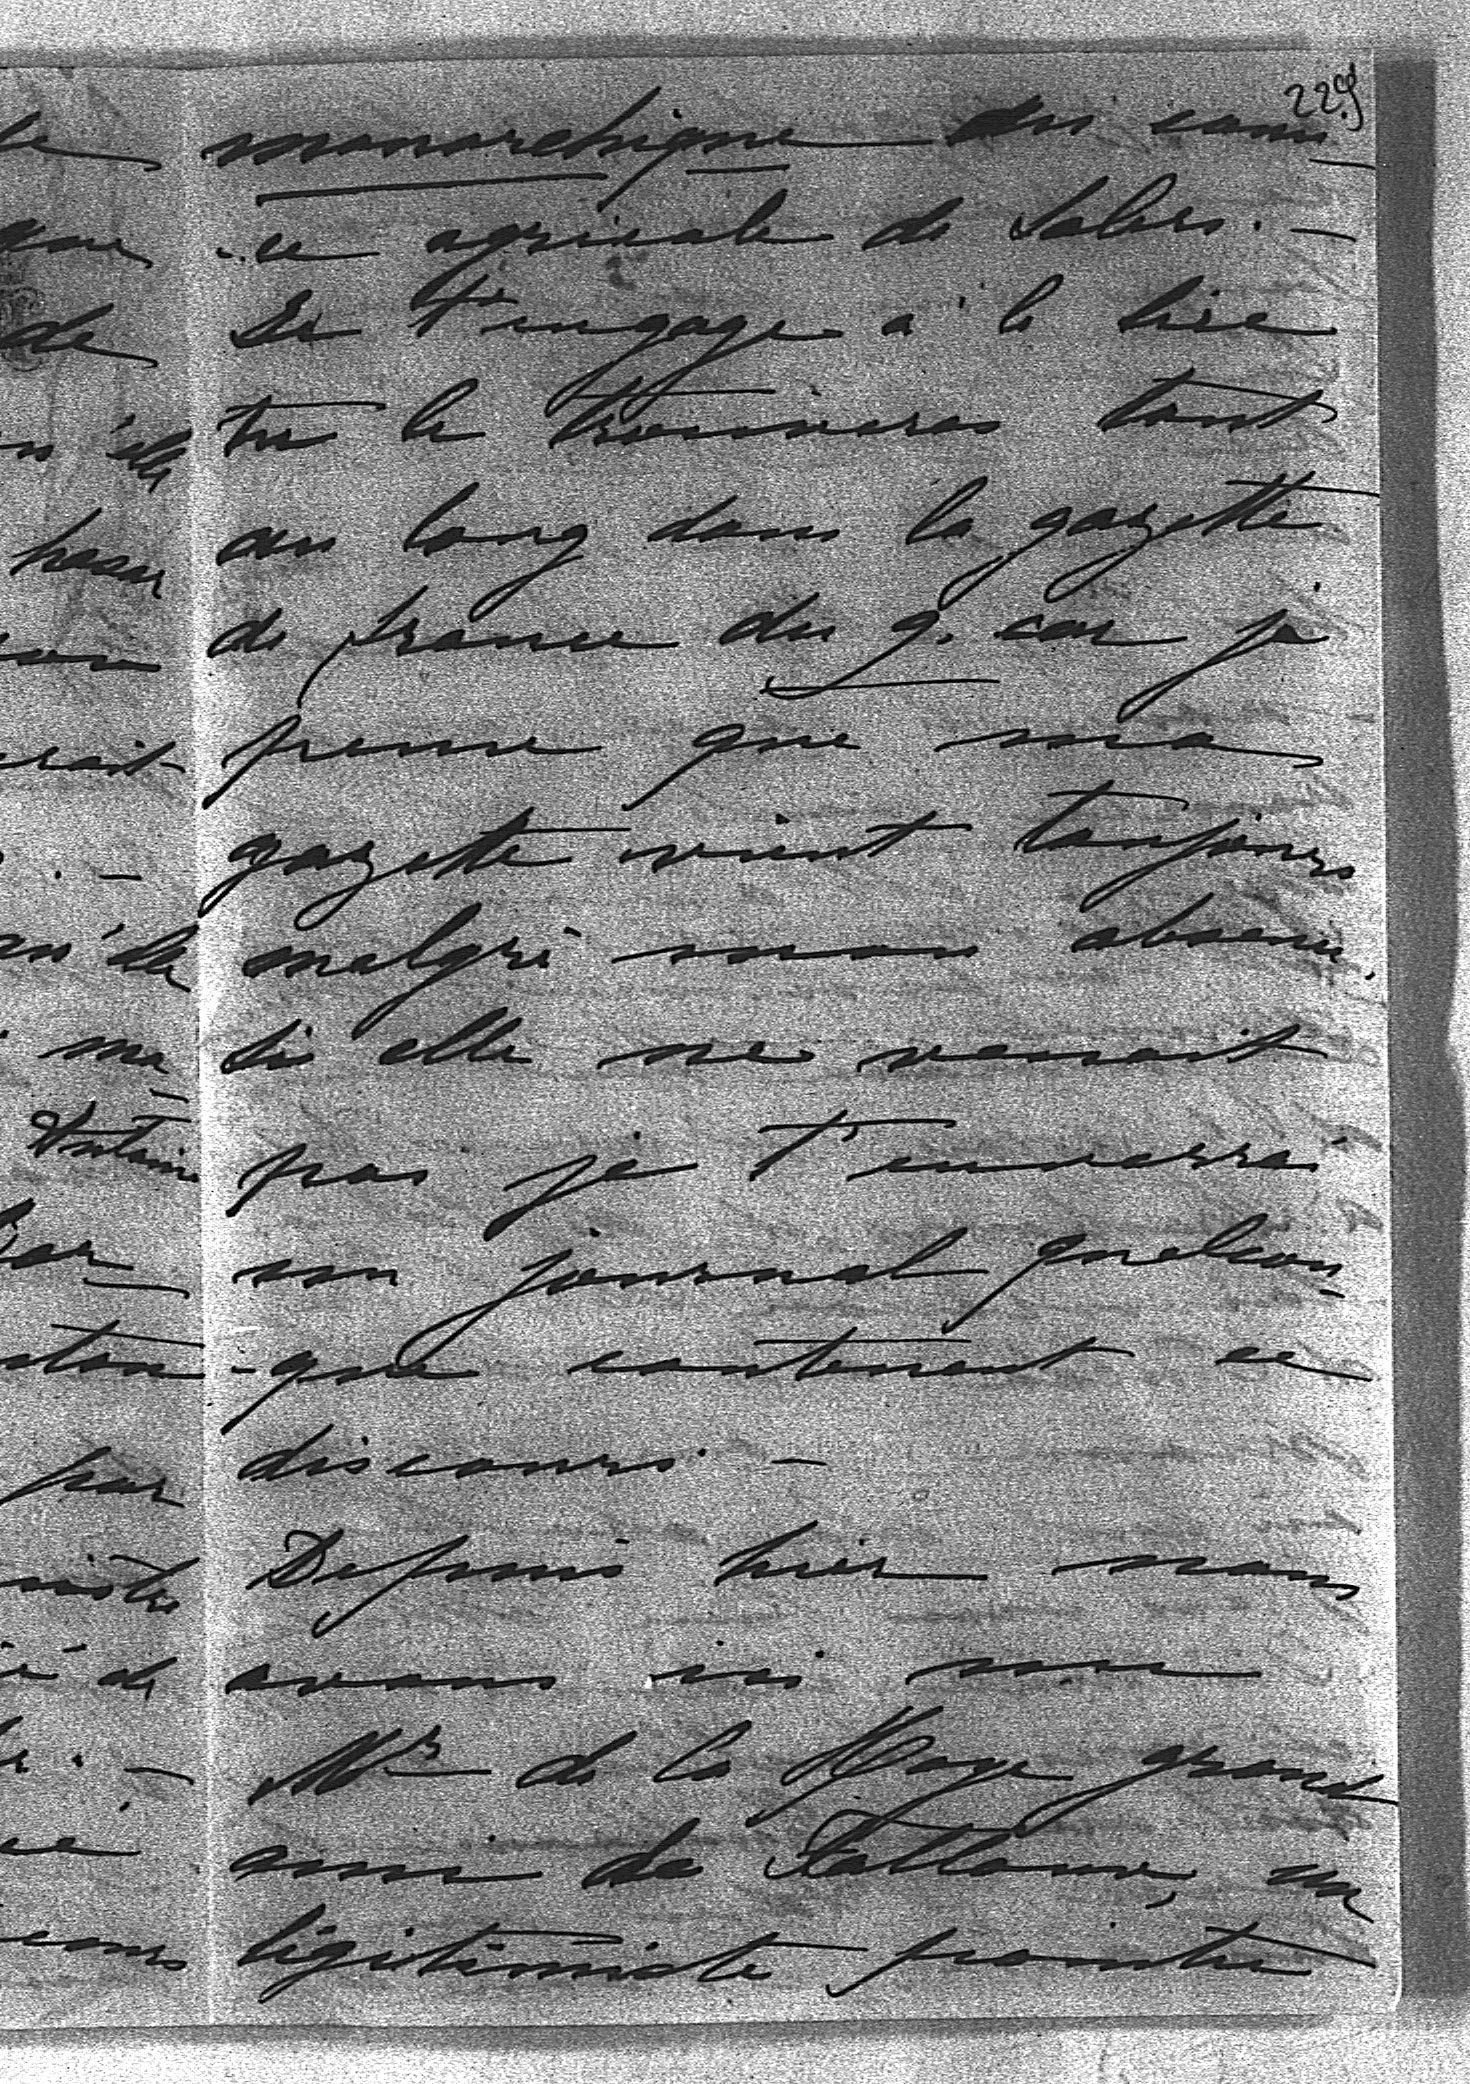 229
monarchique du com
-ce agricole de Salers. -
Je t'engage à le lire
tu le trouveras tout
au long dans la gazette
de france du 9. car je
pense que ma
gazette vient toujours
malgré mon absence.
Si elle ne venait
pas je t'enverrai
un journal quelcon-
-que contenant ce
discours. -
Depuis hier nous
avons ici une
Mr de la Haye grand
ami de Falloux, un
légitimiste pointu
de
n'elle
par
Antoine